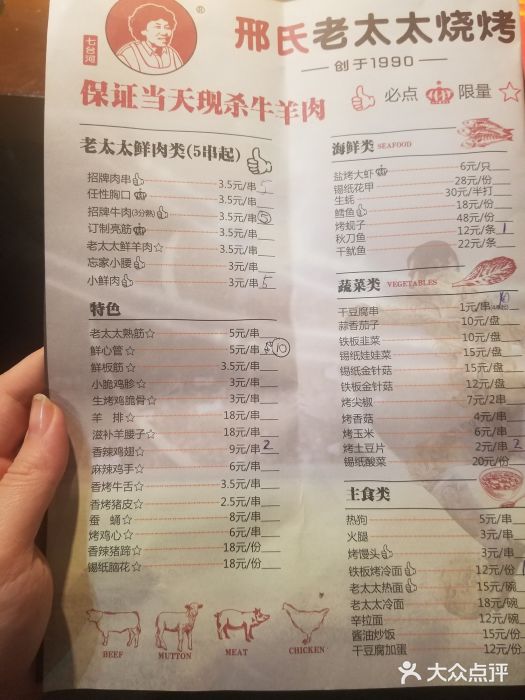 七台河
邢氏老太太烧烤
创于1990
保证当天现杀牛羊肉
必点 限量
老太太鲜肉类(5串起)
招牌肉串 3.5元/串 5
任性胸口 3.5元/串
招牌牛肉(3分熟) 3.5元/串 5
订制亮筋 3.5元/串
老太太鲜羊肉☆ 3.5元/串
忘家小腰 3元/串
小鲜肉 3元/串 5
特色
老太太熟筋☆ 5元/串
鲜心管☆ 5元/串 10
鲜板筋☆ 3.5元/串
小脆鸡胗☆ 3元/串
生烤鸡脆骨☆ 3元/串
羊 排☆ 18元/串
滋补羊腰子☆ 18元/串
香辣鸡翅☆ 9元/串 2
麻辣鸡手☆ 6元/串
香烤牛舌☆ 3.5元/串
香烤猪皮☆ 2.5元/串
蚕 蛹☆ 8元/串
烤鸡心☆ 6元/串
香辣猪蹄☆ 18元/份
锡纸脑花☆ 18元/份
BEEF MUTTON MEAT CHICKEN
海鲜类 SEAFOOD
盐烤大虾 6元/只
锡纸花甲 28元/份
生蚝 30元/半打
鳕鱼 18元/份
烤蚬子 48元/份
秋刀鱼 12元/条 1
干鱿鱼 22元/条
蔬菜类 VEGETABLES
干豆腐串 1元/串 10
蒜香茄子 10元/盘
铁板韭菜 10元/盘
锡纸娃娃菜 15元/盘
锡纸金针菇 15元/盘
铁板金针菇 12元/盘
烤尖椒 7元/2串
烤香菇 4元/串
烤玉米 6元/串
烤土豆片 2元/串 2
锡纸酸菜 20元/份
主食类
热狗 5元/串
火腿 3元/串
烤馒头 3元/串
铁板烤冷面 12元/份
老太太热面 15元/碗
老太太冷面 18元/碗
辛拉面 12元/碗
酱油炒饭 15元/份
干豆腐加蛋 12元/份
大众点评